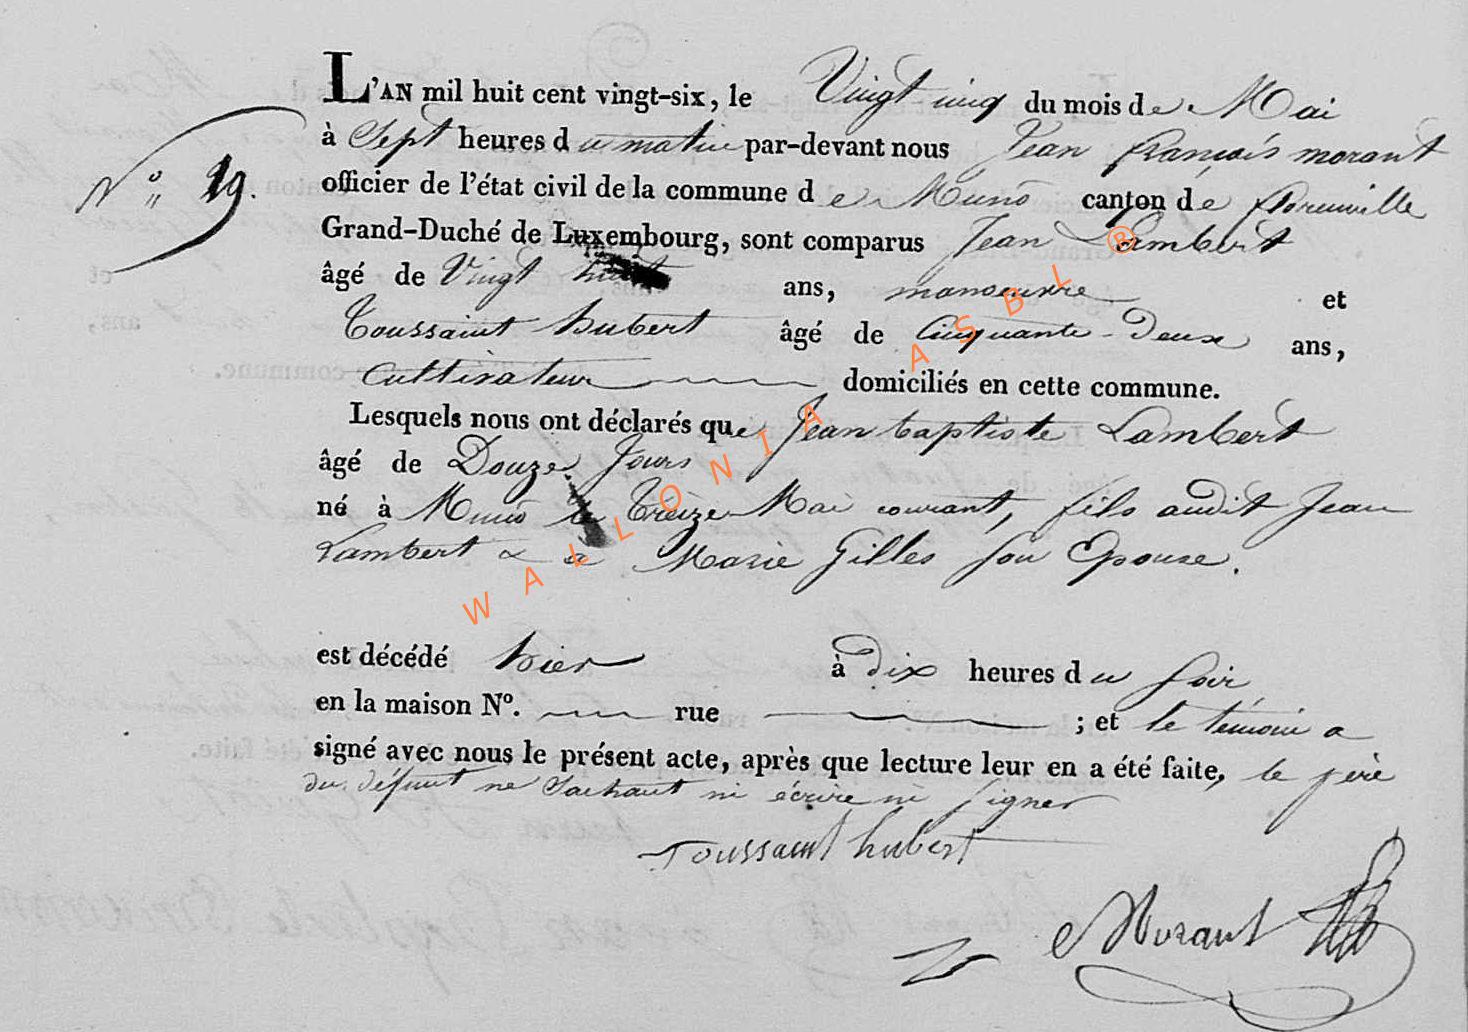 L'AN mil huit cent vingt-six, le Vingt cinq du mois de Mai
à Sept heures du matin par-devant nous Jean françois morant
N° 19. officier de l'état civil de la commune de Muno canton de florenville
Grand-Duché de Luxembourg, sont comparus Jean Lambert
âgé de Vingt huit ans, manoeuvre et
Toussaint hubert âgé de Cinquante-Deux ans,
Cultivateur domiciliés en cette commune.
Lesquels nous ont déclarés que Jean baptiste Lambert
âgé de Douze Jours
né à Muno le Treize Mai courant, fils audit Jean
Lambert & a Marie Gilles son Epouse.
est décédé hier à dix heures du soir
en la maison N°. rue ; et le témoin a
signé avec nous le présent acte, après que lecture leur en a été faite, le père
du défunt ne Sachant ni écrire ni signer
Toussaint hubert
Morant
WALLONIA ASBL ®